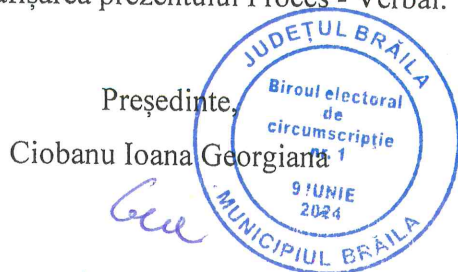 afișarea prezentului Proces - Verbal.
Președinte,
Ciobanu Ioana Georgiana
JUDEȚUL BRĂILA
Biroul electoral
de
circumscripție
nr. 1
9 IUNIE
2024
MUNICIPIUL BRĂILA